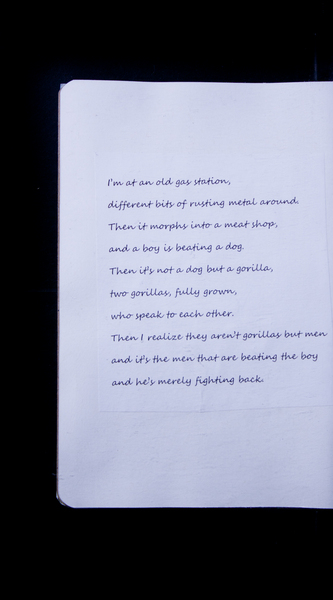 I'm at an old gas station,
different bits of rusting metal around.
Then it morphs into a meat shop,
and a boy is beating a dog.
Then it's not a dog but a gorilla,
two gorillas, fully grown,
who speak to each other.
Then I realize they aren't gorillas but men
and it's the men that are beating the boy
and he's merely fighting back.